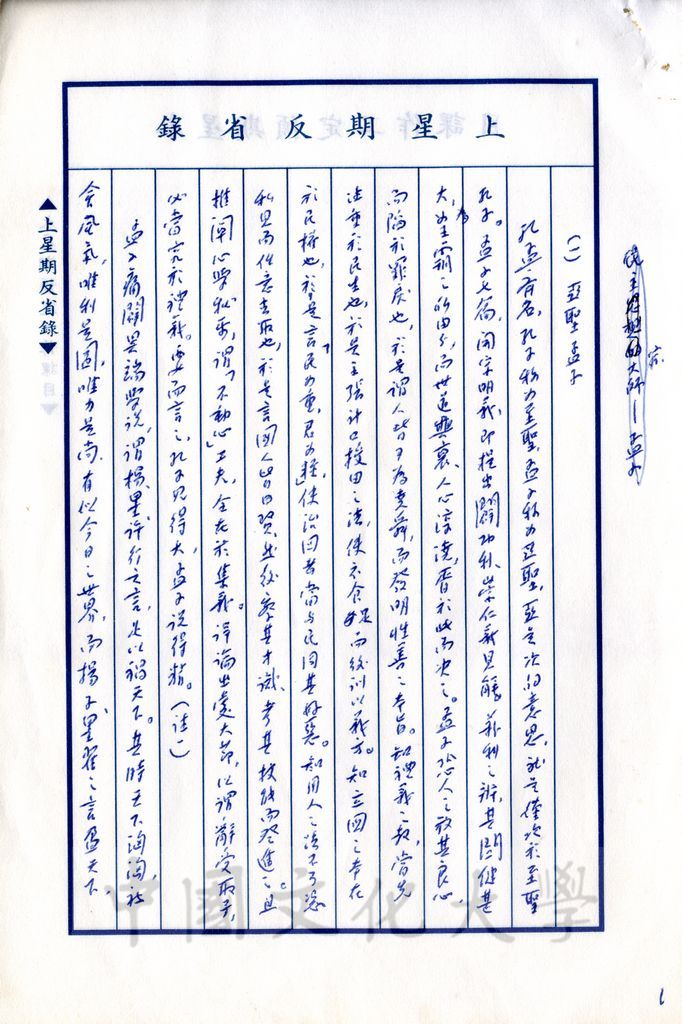 上星期反省錄
民主思想的大師—孟子
(一) 亞聖孟子
孔孟齊名,孔子稱為至聖,孟子稱為亞聖,亞是次的意思,就是僅次於至聖
孔子。孟子七篇,開宗明義即提出闢功利、崇仁義見解,義利之辨,其關係甚
大,為王霸之所由分,而世道興衰、人心淳澆,胥於此而決之。孟子恐人之放其良心
而陷於罪戾也,於是謂人皆可為堯舜,而發明性善之本旨。知禮義之教,當先
注重於民生也,於是主張計口授田之法,使衣食足而後訓以義方。知立國之本在
於民權也,於是言「民為重,君為輕」,使治國者當與民同其好惡。知用人之法不可恣
私見而任意去取也,於是言國人皆曰賢,然後察其才識、考其技能而登進之。且
推闡心學秘要,謂「不動心」工夫,全在於集義。詳論出處大節,以謂辭受取予,
必當究於禮義。要而言之,孔子見得大,孟子說得精。(註一)
孟子痛闢異端學說,謂楊、墨、許行之言,足以禍天下。其時天下洶洶,社
會風氣,唯利是圖,唯力是尚,有似今日之世界,而楊朱、墨翟之言盈天下
▲上星期反省錄▼
中國文化大學
1